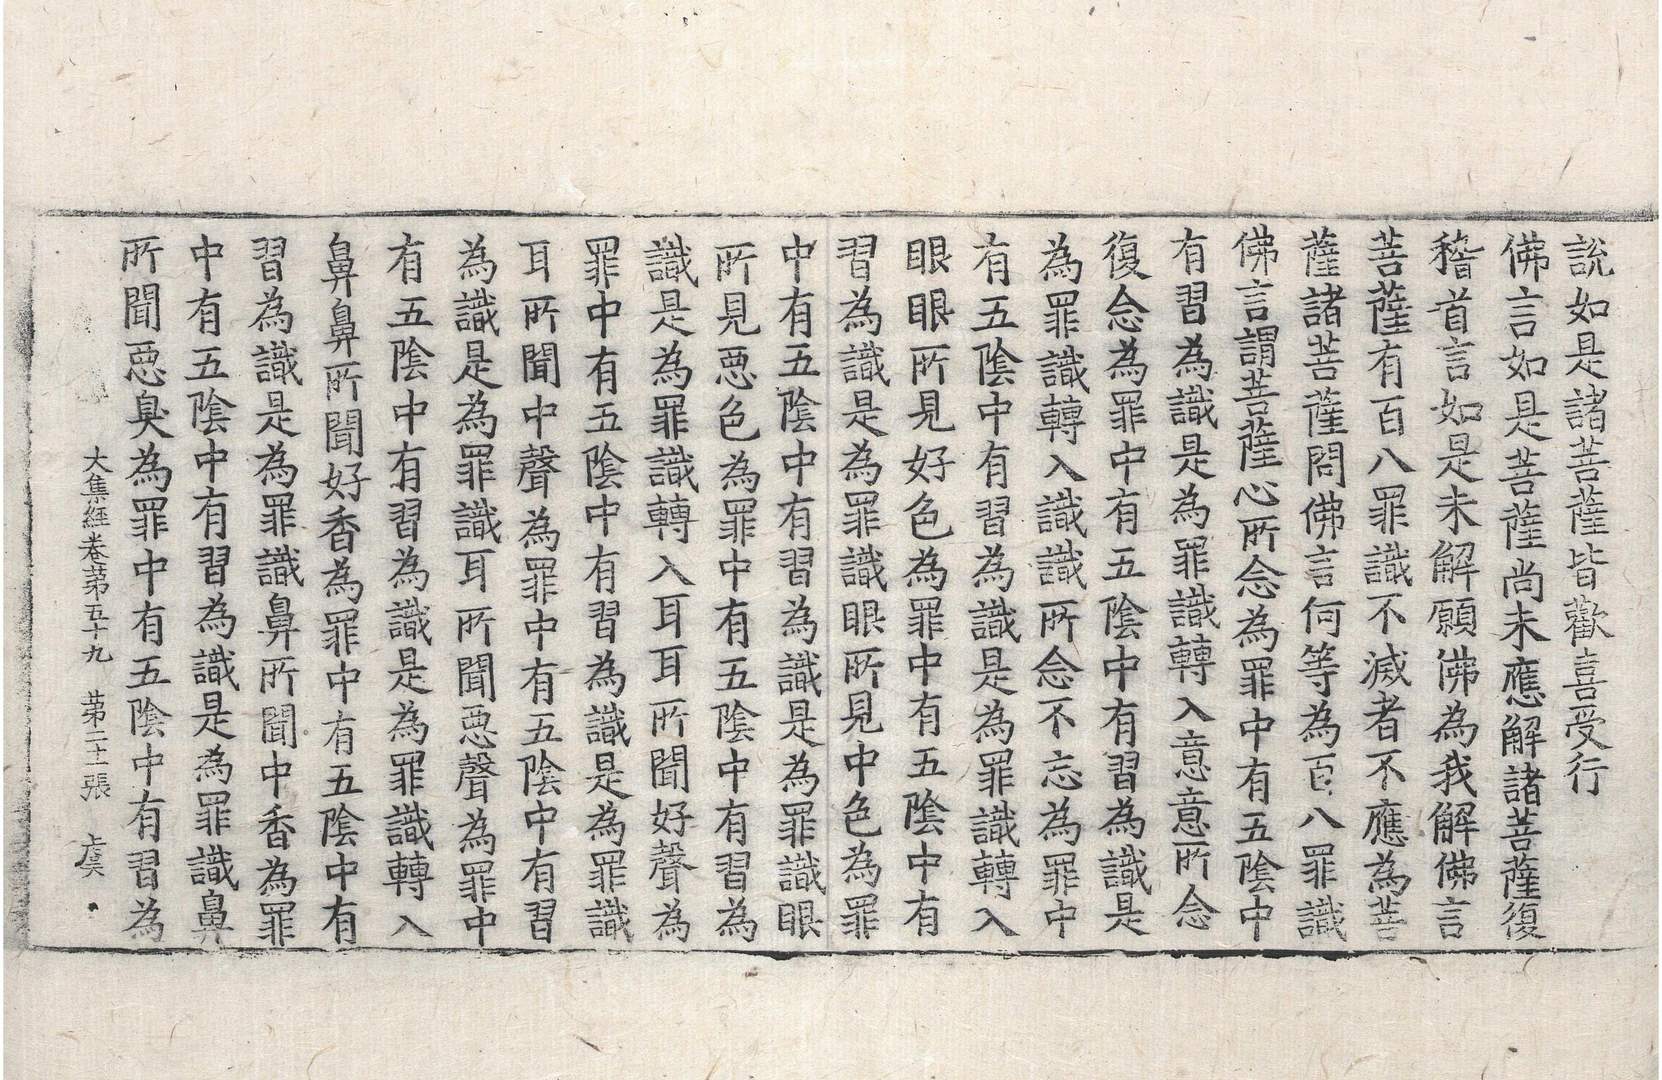 說如是諸菩薩皆歡喜受行
佛言如是菩薩尚未應解諸菩薩復
稽首言如是未解願佛為我解佛言
菩薩有百八罪識不滅者不應為菩
薩諸菩薩問佛言何等為百八罪識
佛言謂菩薩心所念為罪中有五陰中
有習為識是為罪識轉入意意所念
復念為罪中有五陰中有習為識是
為罪識轉入識識所念不忘為罪中
有五陰中有習為識是為罪識轉入
眼眼所見好色為罪中有五陰中有
習為識是為罪識眼所見中色為罪
中有五陰中有習為識是為罪識眼
所見惡色為罪中有五陰中有習為
識是為罪識轉入耳耳所聞好聲為
罪中有五陰中有習為識是為罪識
耳所聞中聲為罪中有五陰中有習
為識是為罪識耳所聞惡聲為罪中
有五陰中有習為識是為罪識轉入
鼻鼻所聞好香為罪中有五陰中有
習為識是為罪識鼻所聞中香為罪
中有五陰中有習為識是為罪識鼻
所聞惡臭為罪中有五陰中有習為
大集經卷第五十九 第二十張 虞